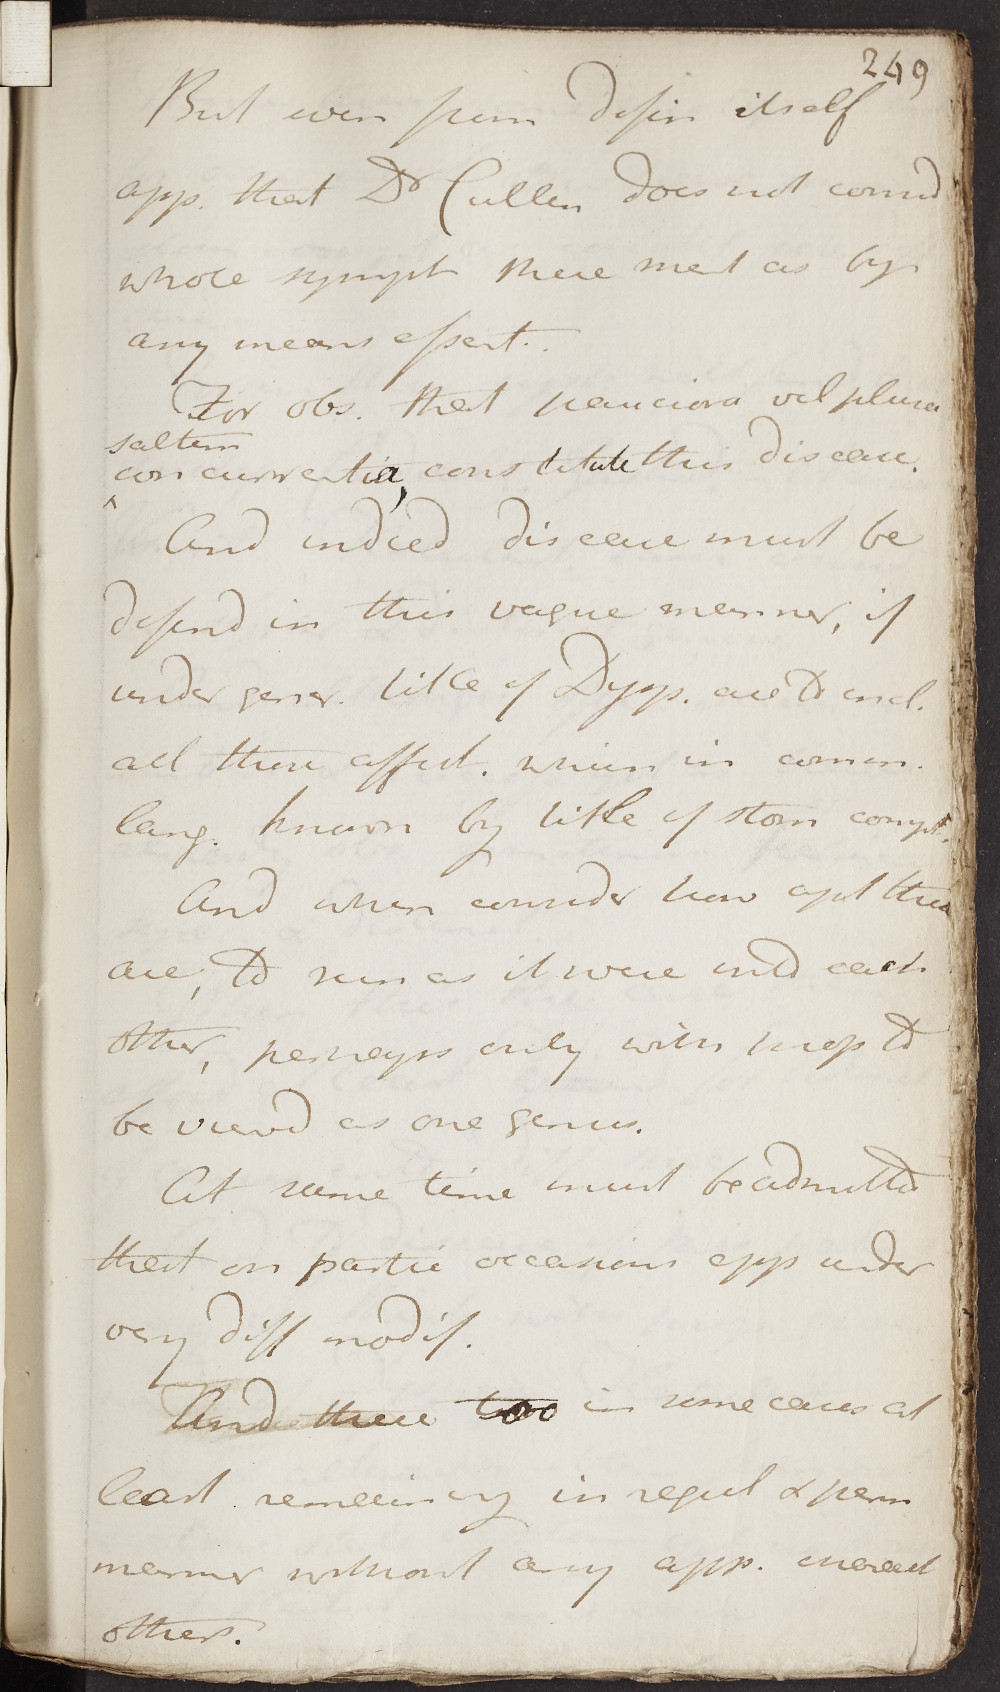 249
But even from defin itself
app. that Dr Cullen does not consid
whole sympt there ment as by
any means essent.
For obs. that pauciora vel plura
saltem
concurrentia, constitute this disease.
And indeed disease must be
defind in this vague manner, if
under gener. title of Dysp. are to incl.
all those affect. which in comon.
lang. known by title of stom compt.
And when consider how apt these
are, to run as it were into each
other, perhaps only with to
be viewd as one genus.
At same time must be admitted
that on partic occasions app under
very diff modif.
And these too in some cases at
least remaining in regul & perm
manner without any app. of
others.